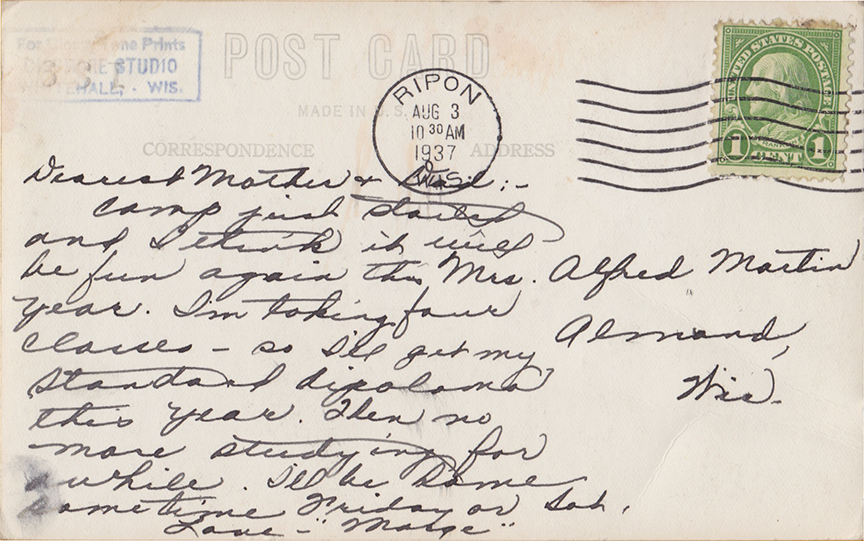 For Glossy Tone Prints
STUDIO
WHITEHALL, - WIS.
POST CARD
MADE IN U.S.A.
CORRESPONDENCE
ADDRESS
RIPON
AUG 3
10 30 AM
1937
WIS.
UNITED STATES POSTAGE
FRANKLIN
1 CENT 1
Dearest Mother & :-
Camp just started
and I think it will
be fun again this
year. I'm taking four
classes - so I'll get my
standard dipoloma
this year. Then no
more studying for
awhile. I'll be home
sometime Friday or Sat.
Love - "Marge"
Mrs. Alfred Martin
Almond,
Wis.